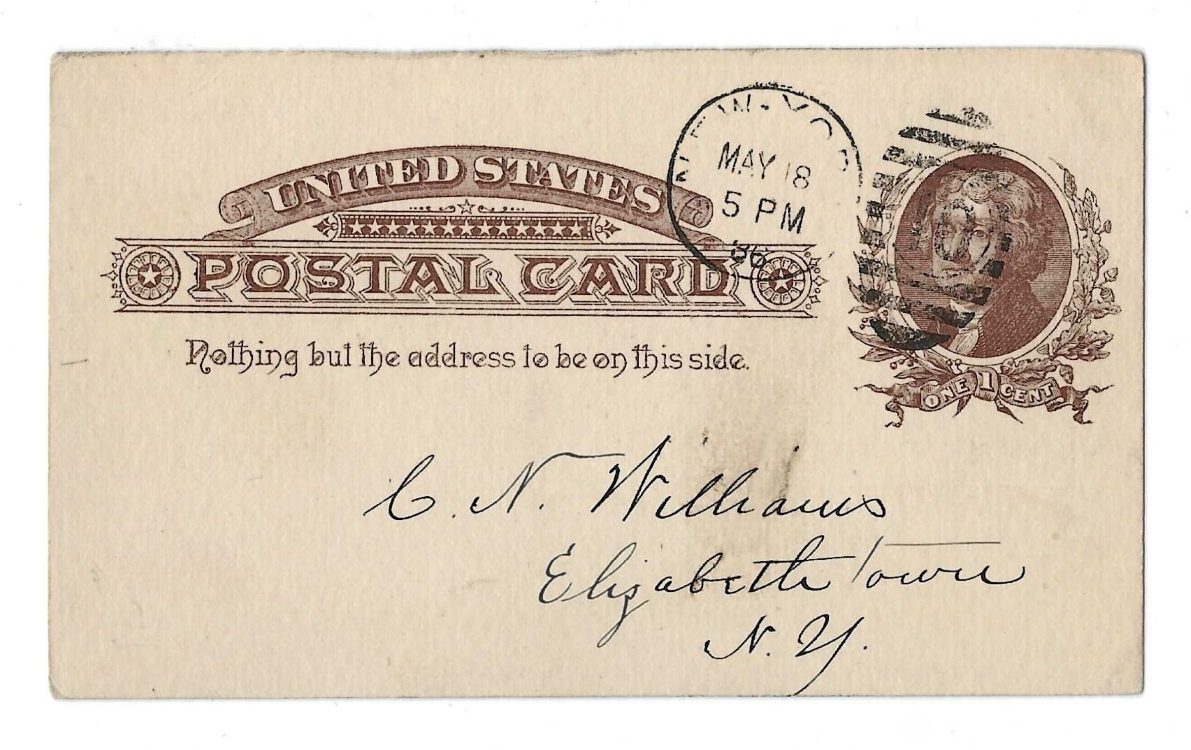 UNITED STATES
POSTAL CARD
Nothing but the address to be on this side.
NEW-YOR
MAY 18
5 PM
86
ONE 1 CENT
C. N. Williams
Elizabethtown
N. Y.